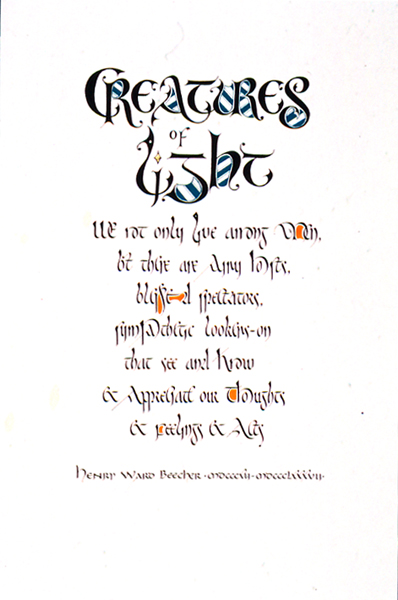 CREATURES
of
Light
We not only live among Men,
but there are Airy hosts,
blessed spectators,
sympathetic lookers-on
that see and know
& Appreciate our Thoughts
& feelings & Acts
Henry Ward Beecher ·